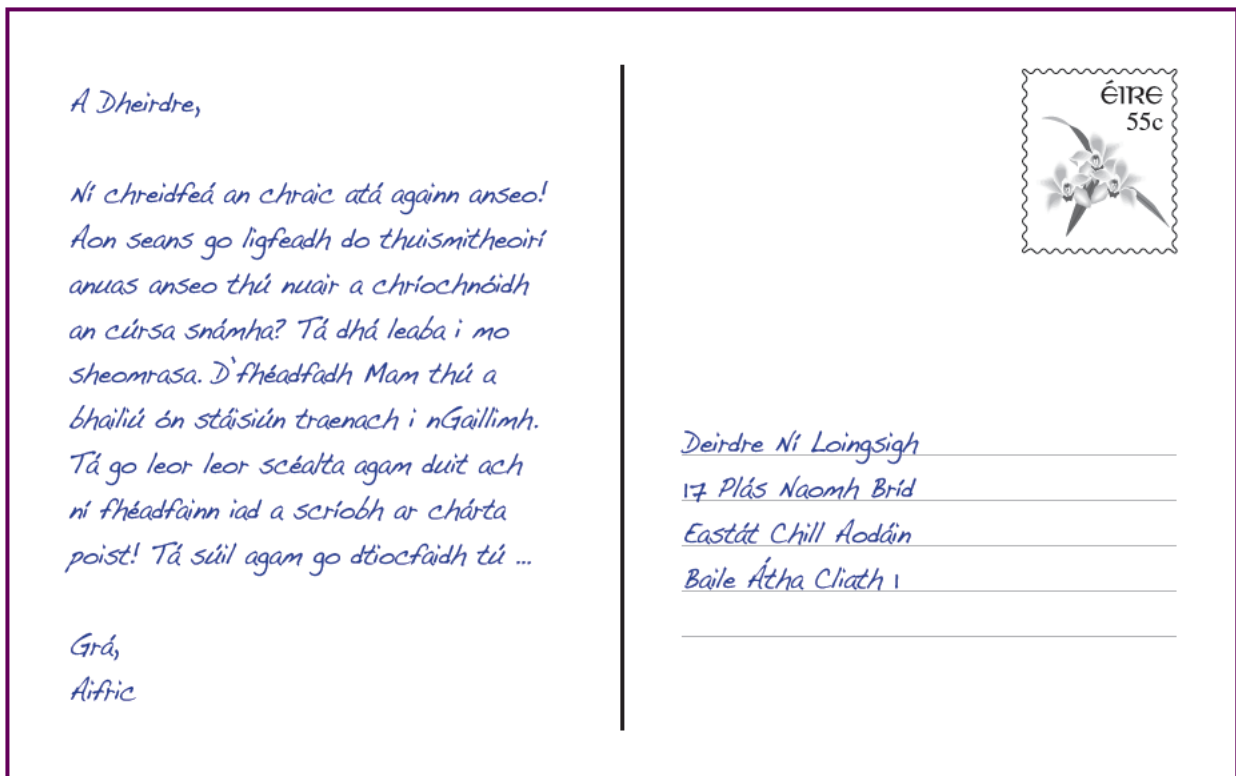 A Dheirdre,
Ní chreidfeá an chraic atá againn anseo!
Aon seans go ligfeadh do thuismitheoirí
anuas anseo thú nuair a chríochnóidh
an cúrsa snámha? Tá dhá leaba i mo
sheomrasa. D'fhéadfadh Mam thú a
bhailiú ón stáisiún traenach i nGaillimh.
Tá go leor leor scéalta agam duit ach
ní fhéadfainn iad a scríobh ar chárta
poist! Tá súil agam go dtiocfaidh tú ...
Grá,
Aifric
ÉIRE
55c
Deirdre Ní Loingsigh
17 Plás Naomh Bríd
Eastát Chill Aodáin
Baile Átha Cliath 1